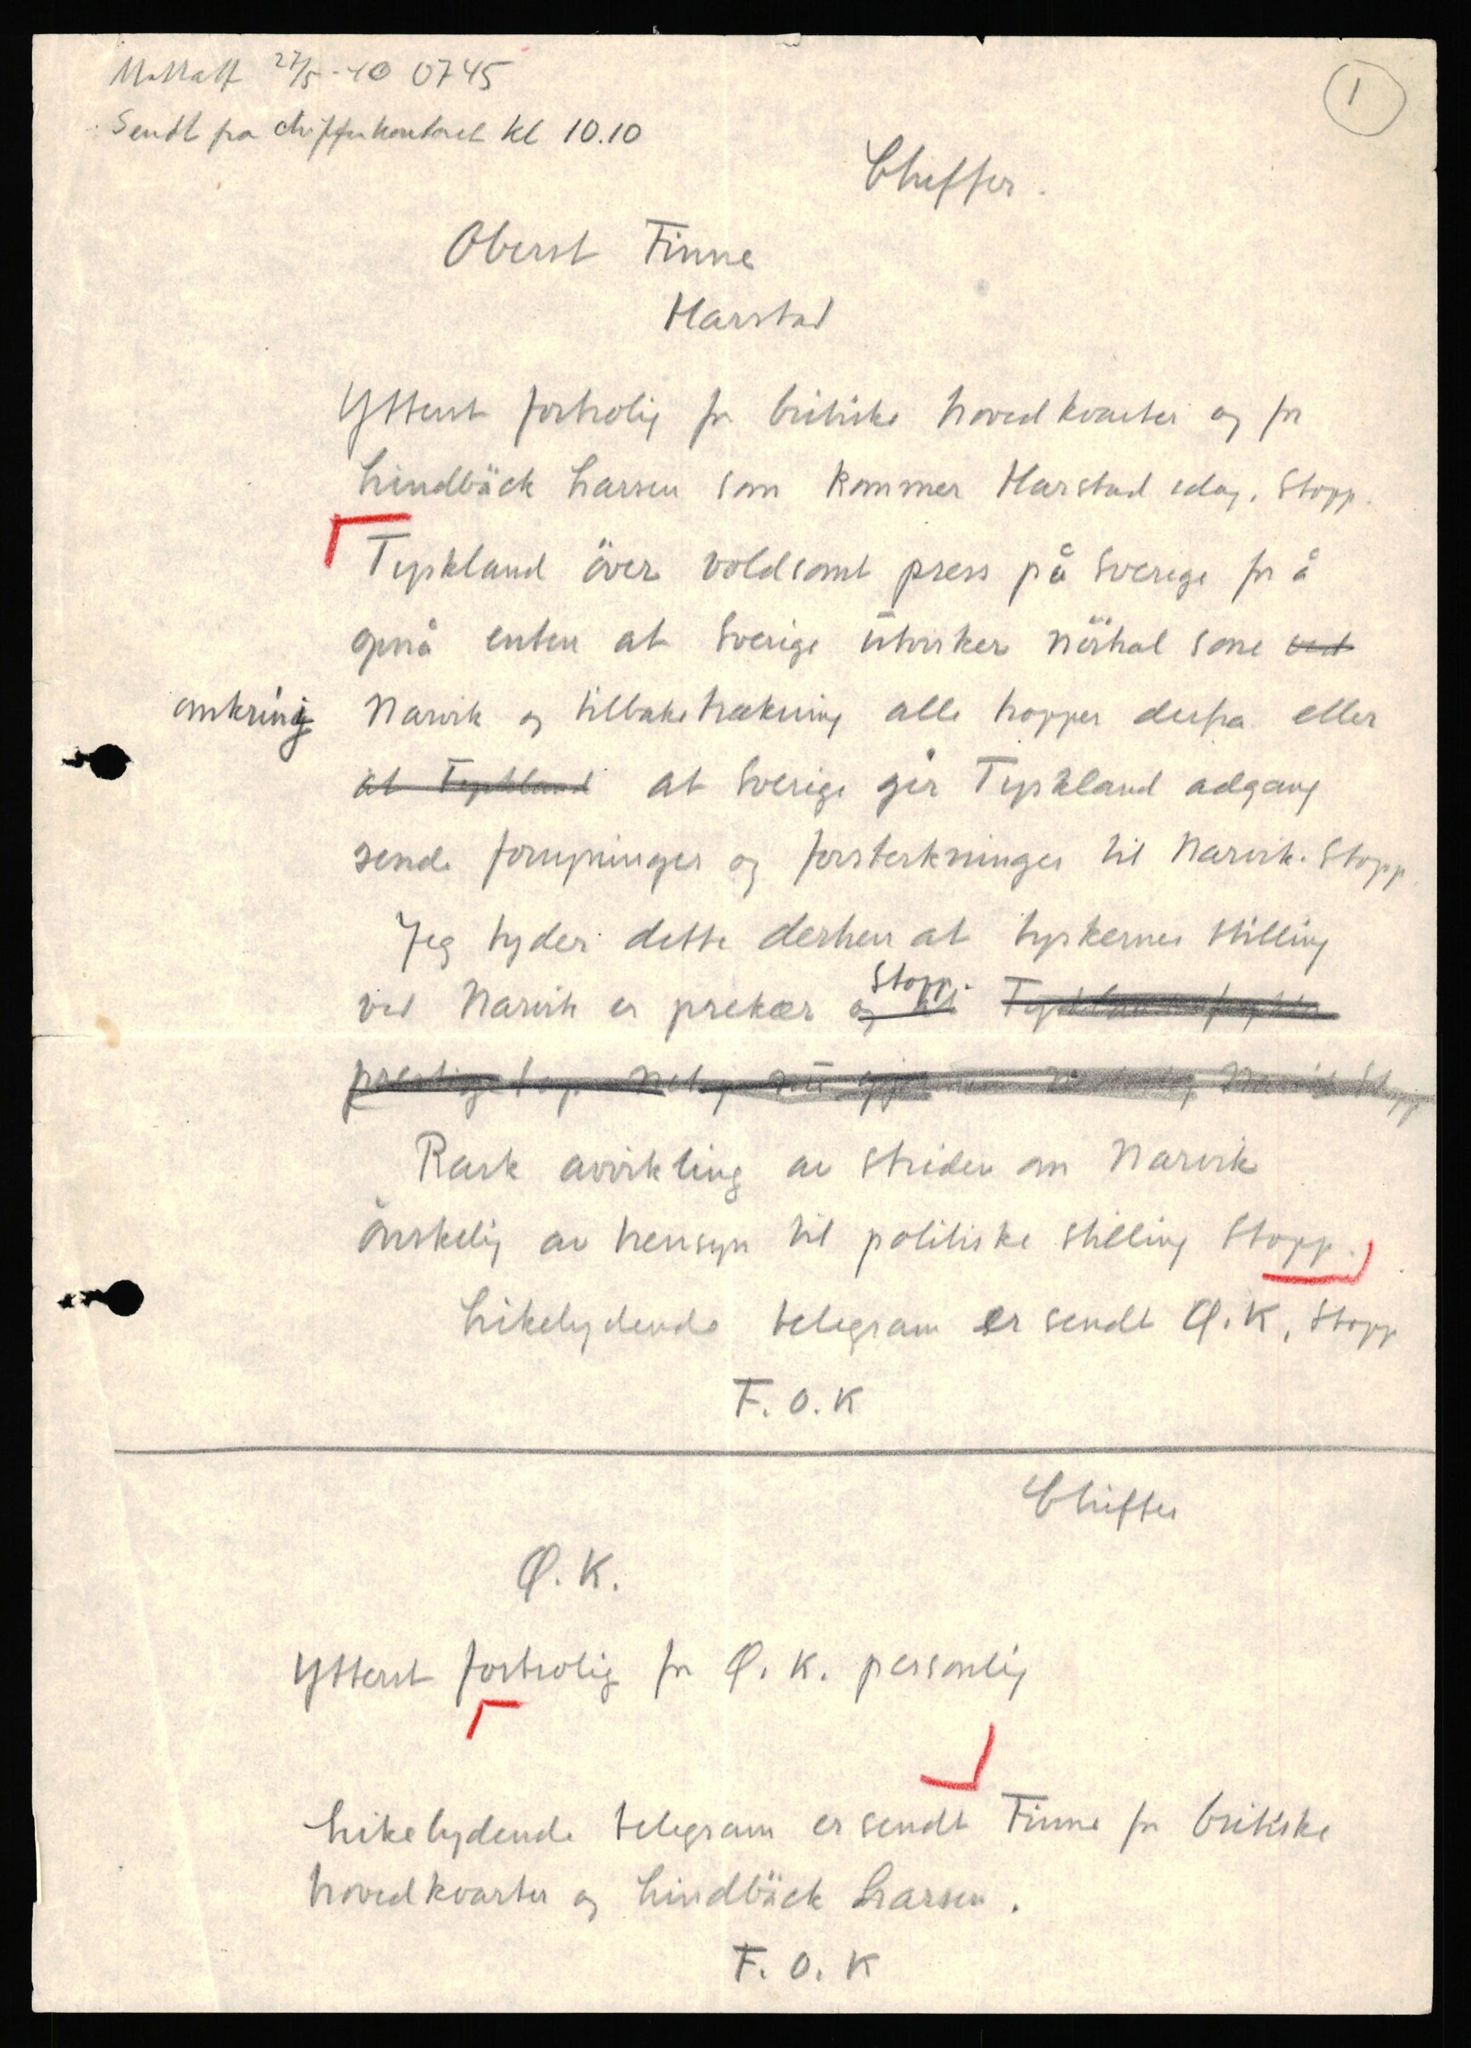 Mottatt 27/5-40 0745
1
Sendt fra chifferkontoret kl 10.10
Chiffer.
Oberst Finne
Harstad
Ytterst fortrolig for britiske hovedkvarter og for
Lindbäck Larsen som kommer Harstad idag. Stopp.
Tyskland över voldsomt press på Sverige for å
opnå enten at Sverige utvirker nöitral sone ved
omkring Narvik og tilbaketrækning alle tropper derfra eller
at Tyskland at Sverige gir Tyskland adgang
sende forsyninger og forsterkninger til Narvik. Stopp.
Jeg tyder dette derhen at tyskernes stilling
ved Narvik er prekær og at Stopp.
prestige
Rask avvikling av striden om Narvik
önskelig av hensyn til politiske stilling Stopp.
Likelydende telegram er sendt Ø.K. Stopp
F.O.K
Chiffer
Ø.K.
Ytterst fortrolig for Ø.K. personlig
Likelydende telegram er sendt Finne for britiske
hovedkvarter og Lindbäck Larsen.
F.O.K